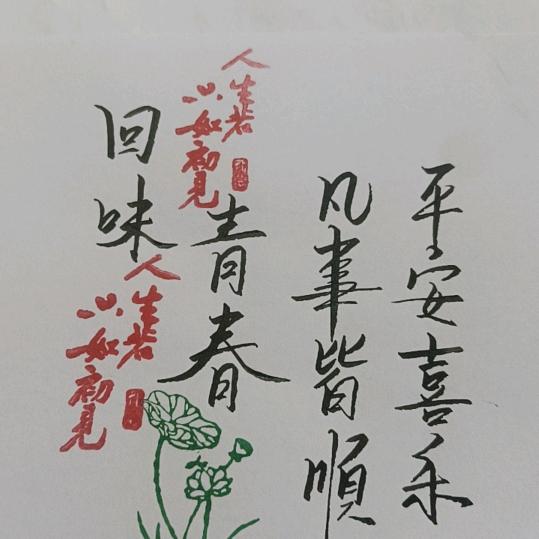 平安喜乐
凡事皆順
青春
回味
人生若
只如初見
人生若
只如初見